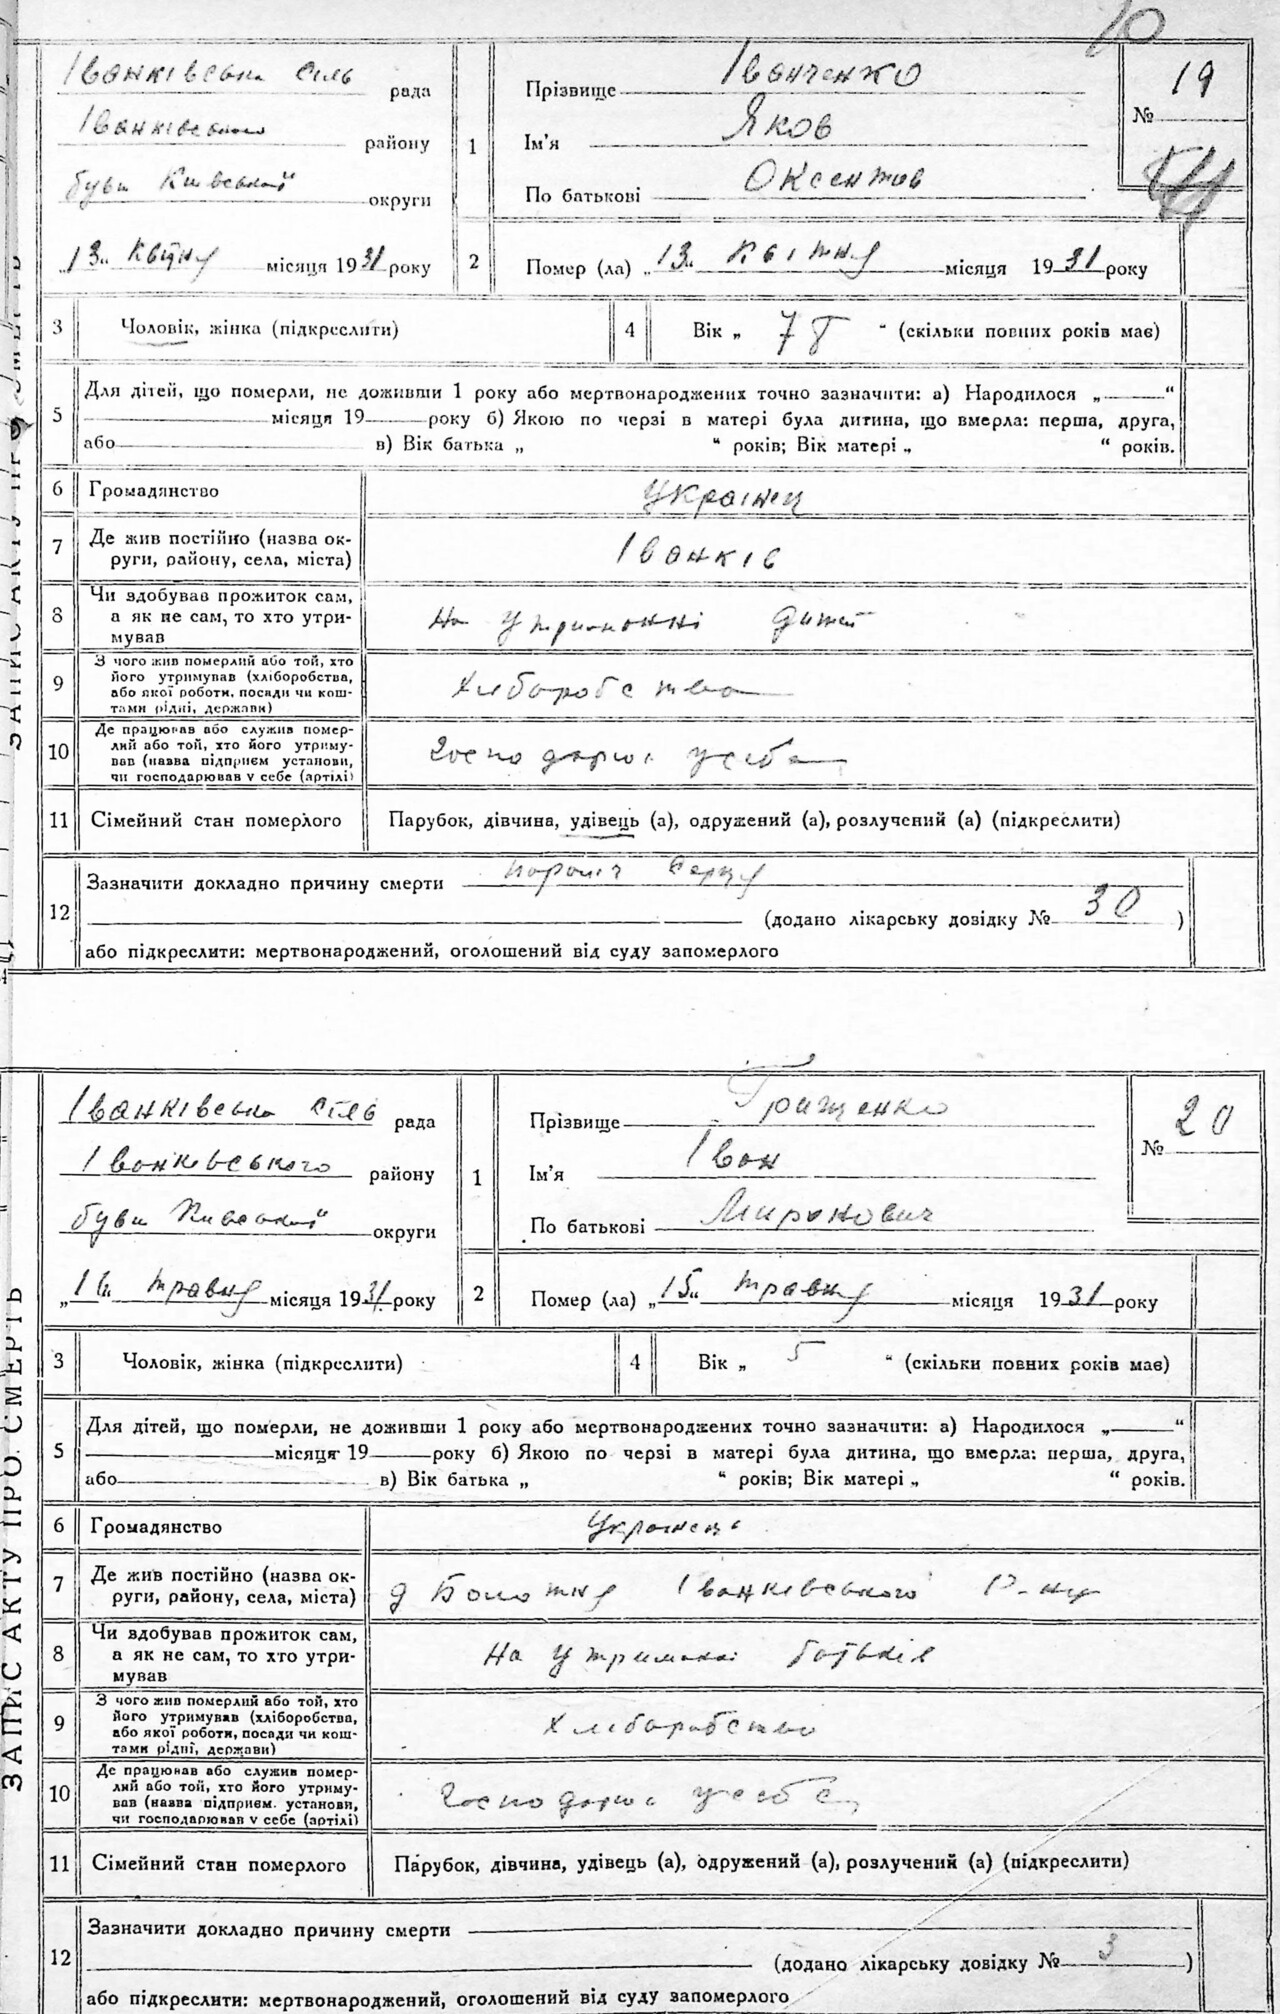 10
Іванківська сіль рада
Іванківського району
був. Київської округи
„13" квітня місяця 1931 року
1
Прізвище Іванченко
Ім'я Яков
По батькові Оксентов
№ 19
2
Помер (ла) „13" квітня місяця 1931 року
3 Чоловік, жінка (підкреслити) 4 Вік „ 78 " (скільки повних років має)
5
Для дітей, що померли, не доживши 1 року або мертвонароджених точно зазначити: а) Народилося „ "
місяця 19 року б) Якою по черзі в матері була дитина, що вмерла: перша, друга,
або в) Вік батька „ " років; Вік матері „ " років.
6 Громадянство українец
7 Де жив постійно (назва ок-
руги, району, села, міста) Іванків
8 Чи здобував прожиток сам,
а як не сам, то хто утри-
мував На утриманні дитей
9 З чого жив померлий або той, хто
його утримував (хліборобства,
або якої роботи, посади чи кош-
тами рідні, держави) Хліборобства
10 Де працював або служив помер-
лий або той, хто його утриму-
вав (назва підприєм установи,
чи господарював у себе (артілі) Господарює у себе
11 Сімейний стан померлого Парубок, дівчина, удівець (а), одружений (а), розлучений (а) (підкреслити)
12
Зазначити докладно причину смерти параліч серця
(додано лікарську довідку № 30 )
або підкреслити: мертвонароджений, оголошений від суду запомерлого
ЗАПИС АКТУ ПРО СМЕРТЬ
Іванківська сіль рада
Іванківського району
був. Київської округи
„16" травня місяця 1931 року
1
Прізвище Грищенко
Ім'я Іван
По батькові Миронович
№ 20
2
Помер (ла) „15" травня місяця 1931 року
3 Чоловік, жінка (підкреслити) 4 Вік „ 5 " (скільки повних років має)
5
Для дітей, що померли, не доживши 1 року або мертвонароджених точно зазначити: а) Народилося „ "
місяця 19 року б) Якою по черзі в матері була дитина, що вмерла: перша, друга,
або в) Вік батька „ " років; Вік матері „ " років.
6 Громадянство Українець
7 Де жив постійно (назва ок-
руги, району, села, міста) д Болотня Іванківського Р-ну
8 Чи здобував прожиток сам,
а як не сам, то хто утри-
мував На утриманні батьків
9 З чого жив померлий або той, хто
його утримував (хліборобства,
або якої роботи, посади чи кош-
тами рідні, держави) Хліборобство
10 Де працював або служив помер-
лий або той, хто його утриму-
вав (назва підприєм. установи,
чи господарював у себе (артілі) Господарює у себе
11 Сімейний стан померлого Парубок, дівчина, удівець (а), одружений (а), розлучений (а) (підкреслити)
12
Зазначити докладно причину смерти
(додано лікарську довідку № 3 )
або підкреслити: мертвонароджений, оголошений від суду запомерлого
ЗАПИС АКТУ ПРО СМЕРТЬ